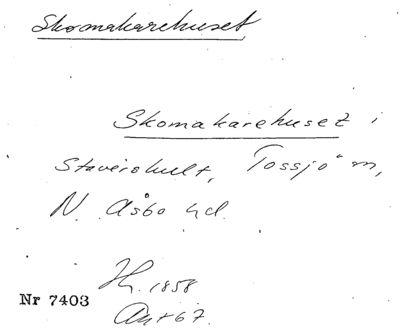 Skomakarehuset
Skomakarehuset i
Stavershult, Tossjö m,
N. Åsbo hd.
H. 1858
Nr 7403
Ant 67.